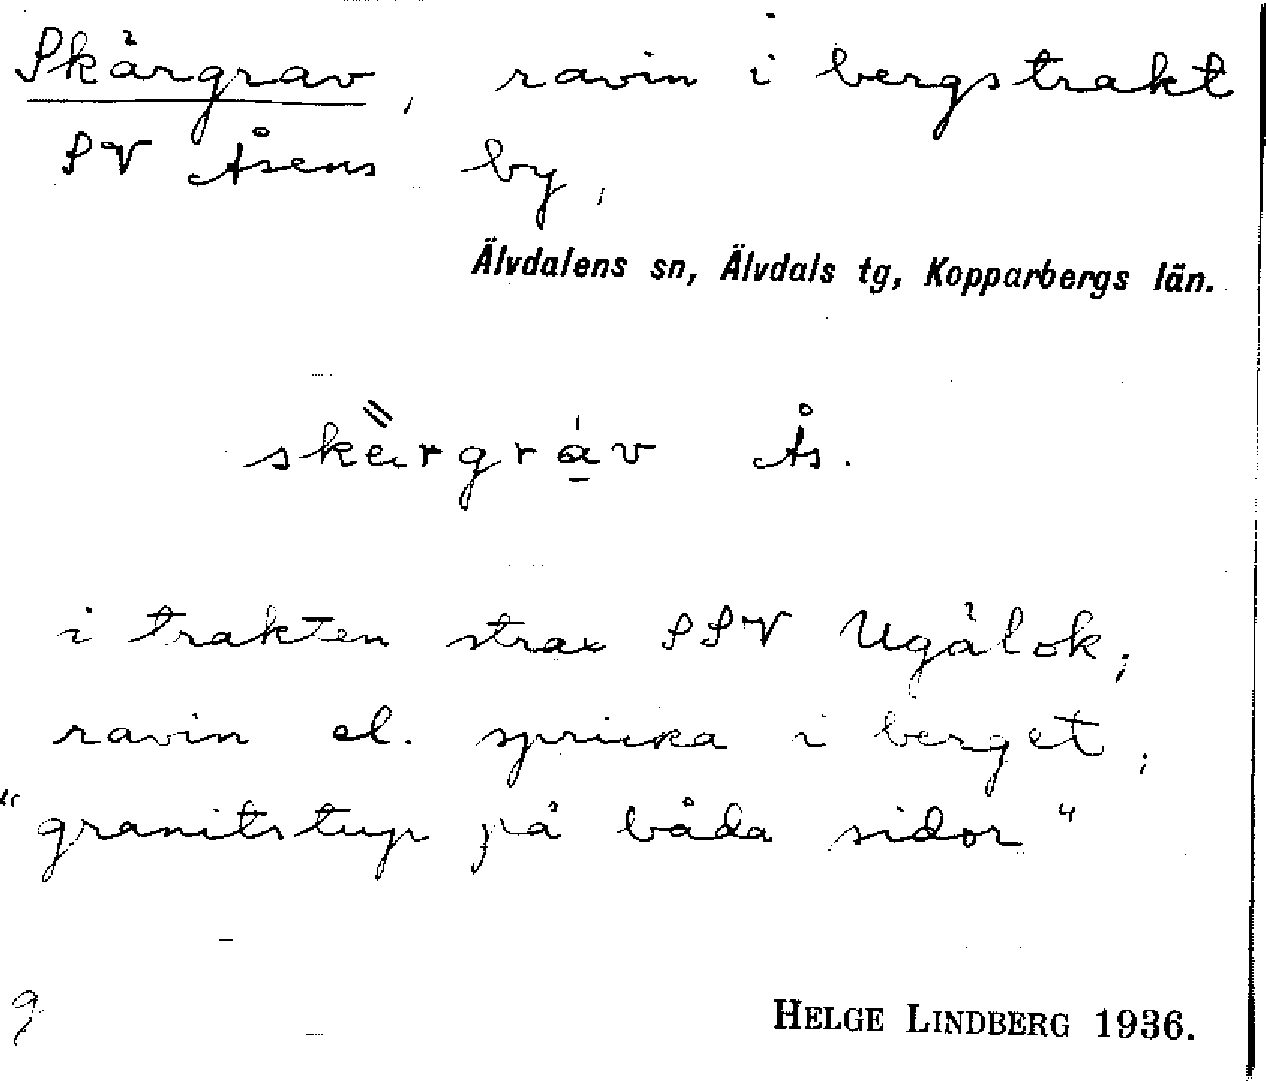 Skärgrav, ravin i bergstrakt
SV Åsens by,
Älvdalens sn, Älvdals tg, Kopparbergs län.
skä̀rgráv Ås.
i trakten strax SSV Ugålok,
ravin el. spricka i berget,
"granitstup på båda sidor"
HELGE LINDBERG 1936.